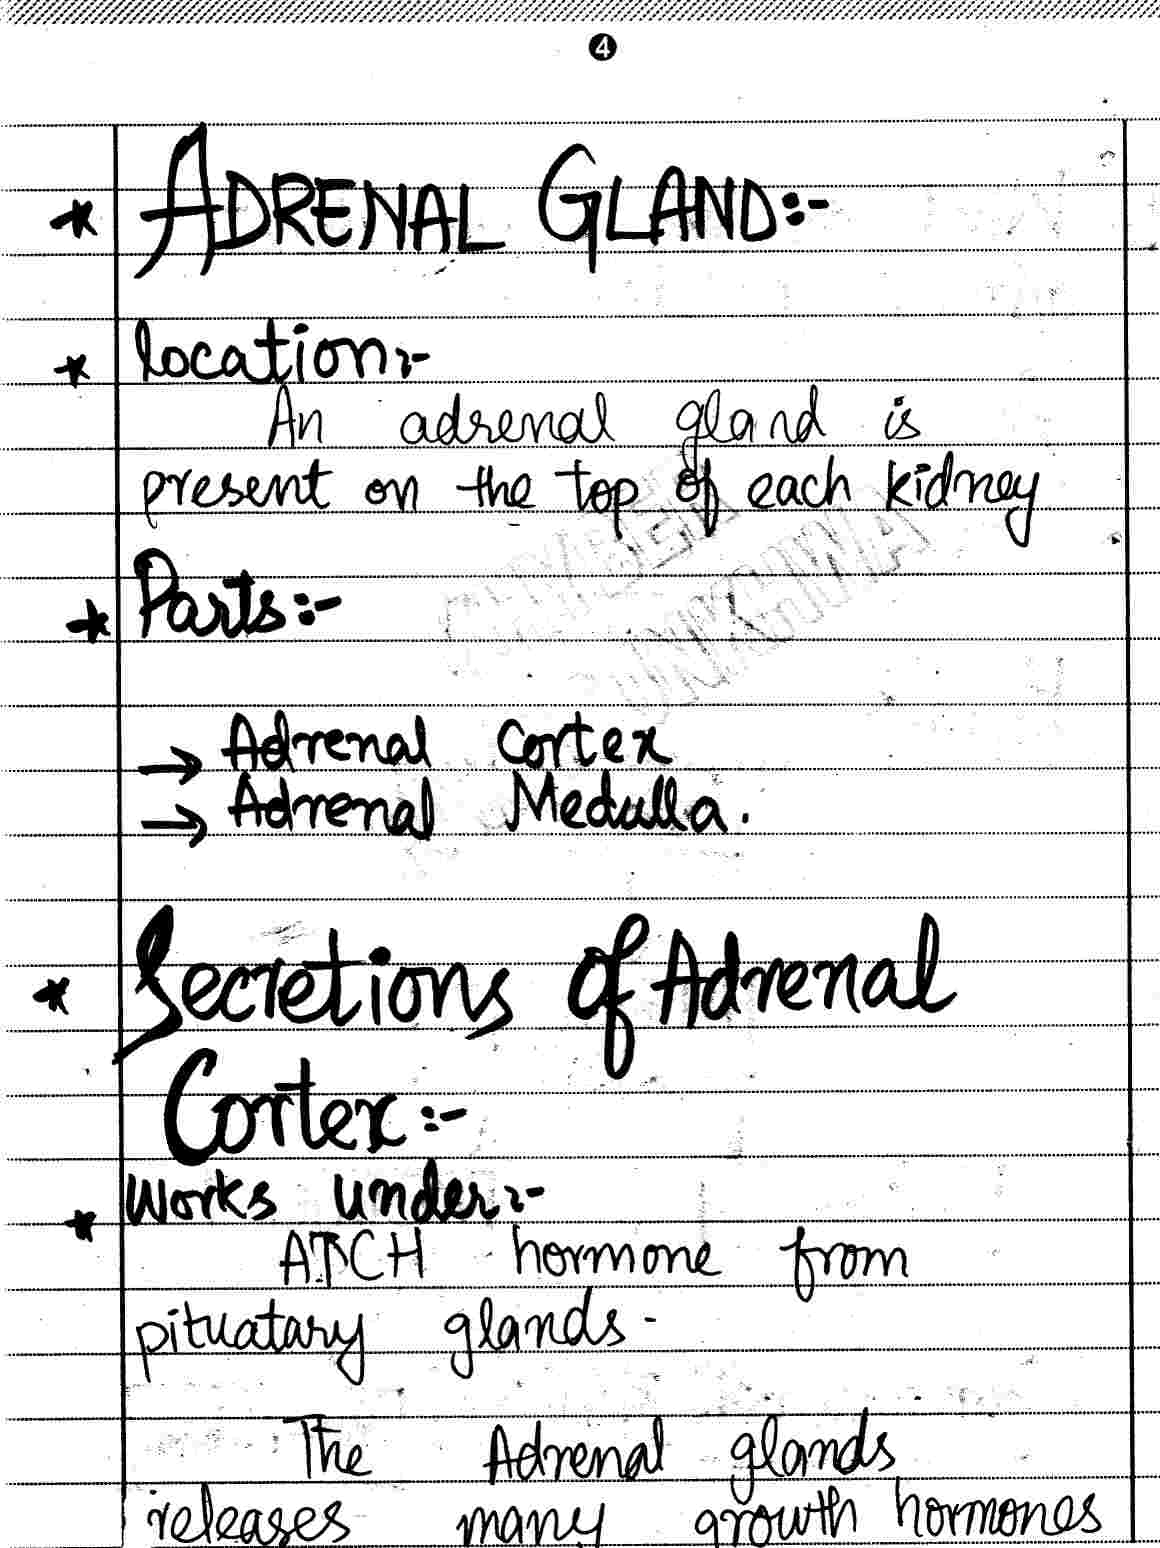 4
* ADRENAL GLAND:-
* location:-
An adrenal gland is
present on the top of each kidney
* Parts:-
→ Adrenal Cortex
→ Adrenal Medulla.
* Secretions of Adrenal
Cortex:-
* Works under:-
ATCH hormone from
pituatary glands.
The Adrenal glands
releases many growth hormones